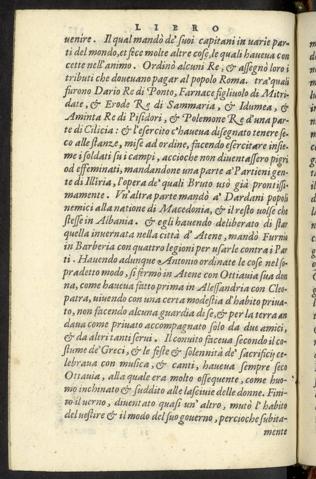 LIBRO
uenire. Il qual mandò de' suoi capitani in uarie par-
ti del mondo, et fece molte altre cose, le quali haueua con
cette nell'animo. Ordinò alcuni Re, & assegnò loro i
tributi che doueuano pagar al popolo Roma. tra' quali
furono Dario Re di Ponto, Farnace figliuolo di Mitri-
date, & Erode Re di Sammaria, & Idumea, &
Aminta Re di Pisidori, & Polemone Re d'una par-
te di Cilicia: & l'esercito c'haueua disegnato tenere se-
co alle stanze, mise ad ordine, facendo esercitare insie-
me i soldati su i campi, accioche non diuentassero pigri
od effeminati, mandandone una parte a' Partieni gen-
te di Illiria, l'opera de' quali Bruto usò già prontissi-
mamente. Vn'altra parte mandò a' Dardani popoli
nemici alla natione di Macedonia, & il resto uolse che
stesse in Albania. & egli hauendo deliberato di star
quella inuernata nella città d'Atene, mandò Furnio
in Barberia con quattro legioni per usarle contra i Par
ti. Hauendo adunque Antonio ordinate le cose nel so-
pradetto modo, si fermò in Atene con Ottauia sua don
na, come haueua fatto prima in Alessandria con Cleo-
patra, uiuendo con una certa modestia d'habito priua-
to, non facendo alcuna guardia di se, & per la terra an
daua come priuato accompagnato solo da due amici,
& da altri tanti serui. Il conuito faceua secondo il co-
stume de' Greci, & le feste & solennità de' sacrificij ce-
lebraua con musica, & canti, haueua sempre seco
Ottauia, alla quale era molto ossequente, come huo-
mo inchinato & suddito alle lasciuie delle donne. Fini-
to il uerno, diuentato quasi un'altro, mutò l'habito
del uestire & il modo del suo gouerno, percioche subita-
mente